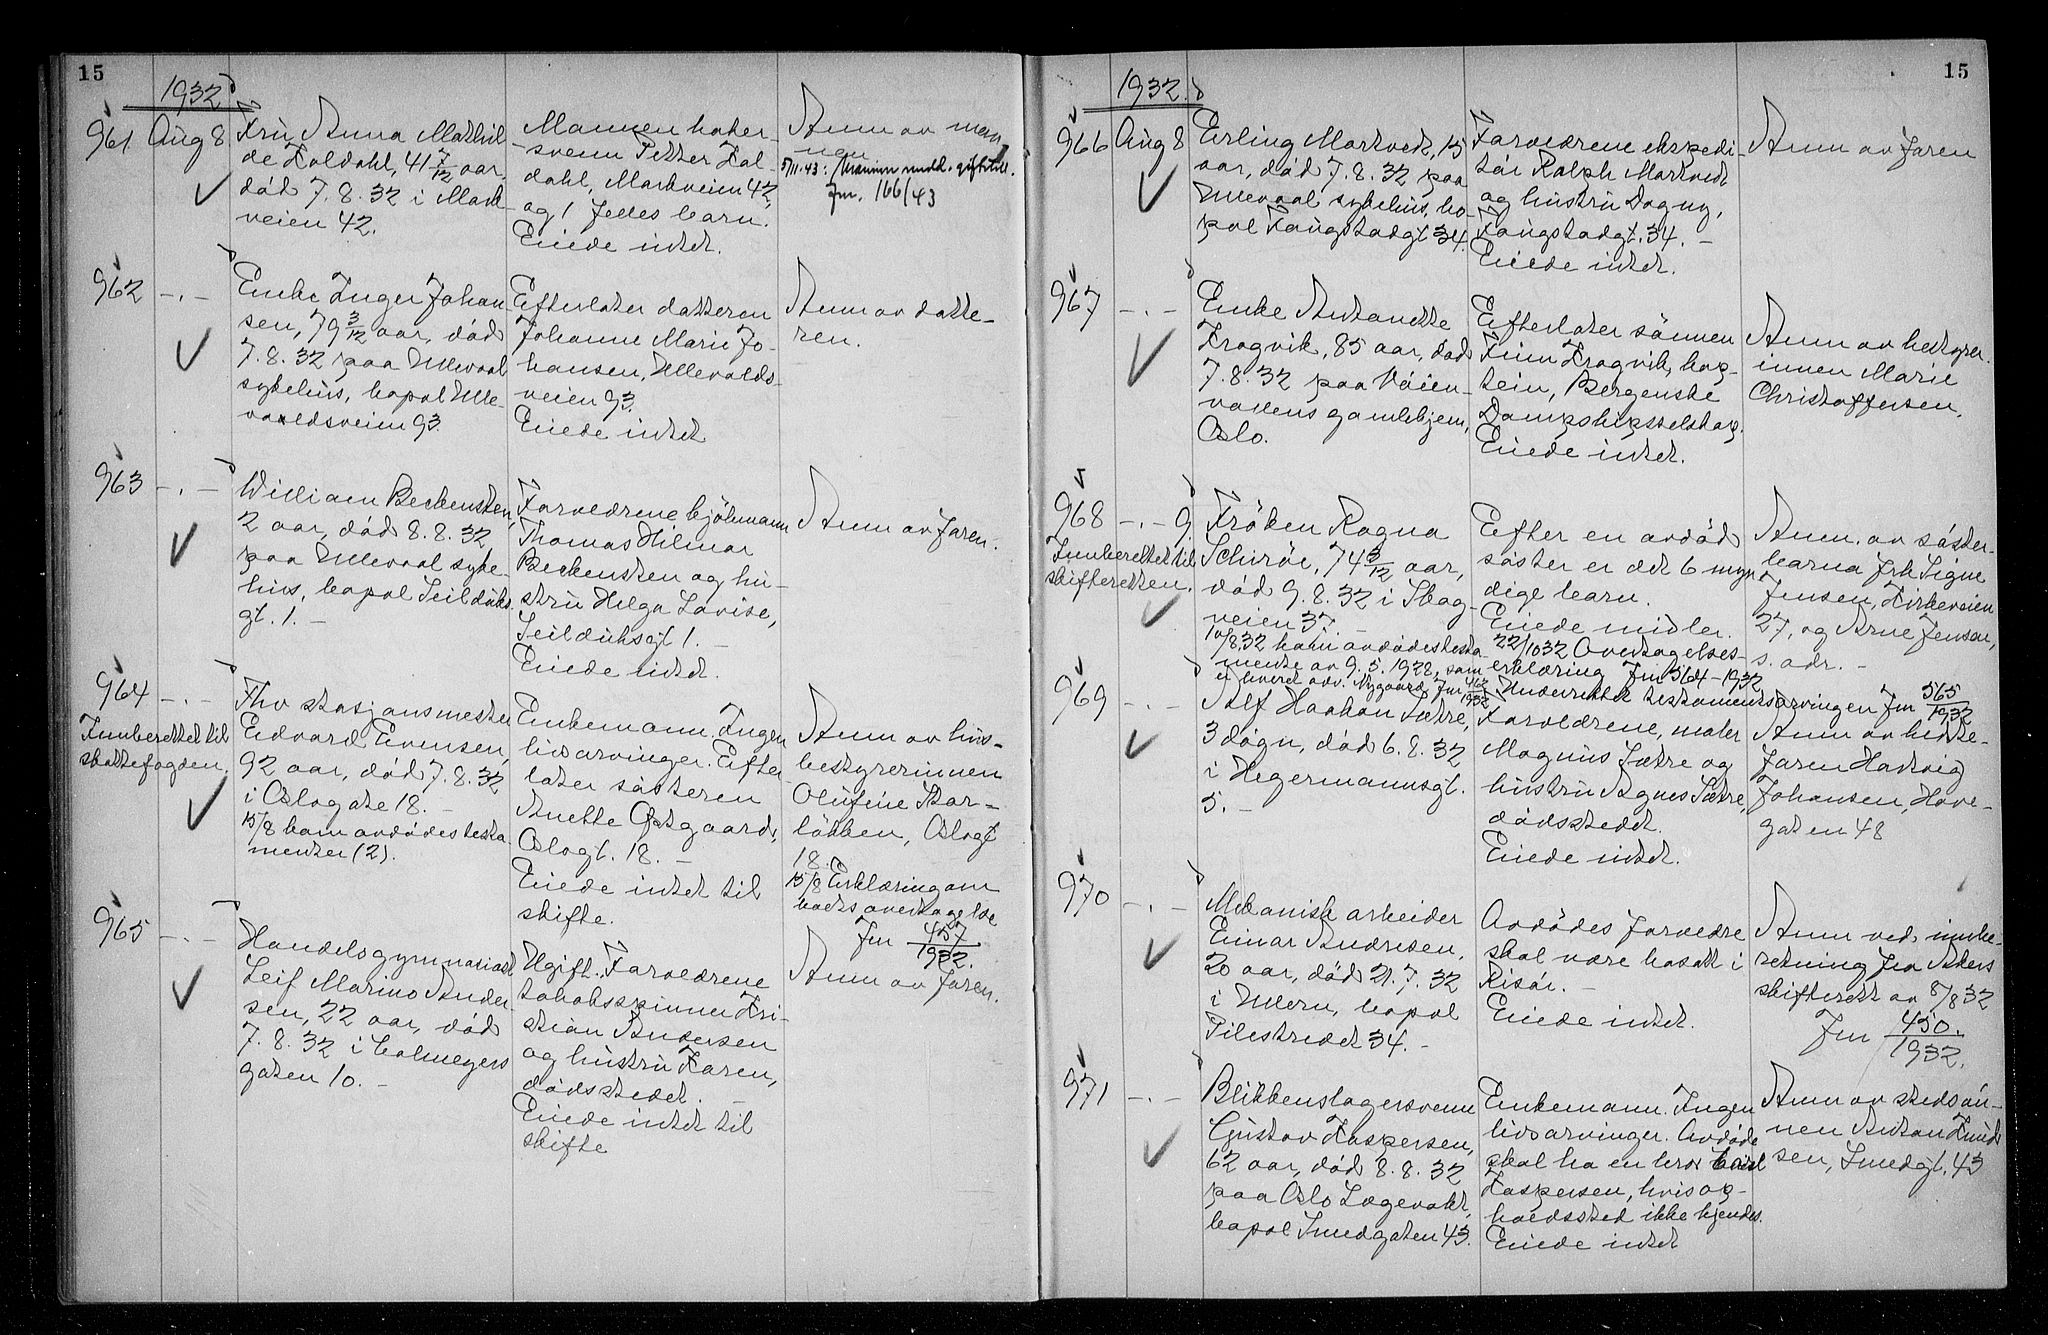 15
1932
961 Aug 8.
Fru Anna Mathil-
de Foldahl, 41 7/12 aar,
död 7.8.32 i Mark-
veien 42.
Mannen
svenn Petter Fol-
dahl, Markveien 42,
og 1 felles barn.
Eiede intet.
Anm av man-
nen
5/11.43:
Jnr. 166/43
962 -.-
Enke Inger Johan-
sen, 79 3/12 aar, död
7.8.32 paa Ullevaal
sykehus, bopel Ulle-
vaaldsveien 93.
Efterlater datteren
Johanne Marie Jo-
hansen, Ullevolds-
veien 93.
Eiede intet
Anm av datte-
ren.
963 -.-
William Beckensten,
2 aar, död 8.8.32
paa Ullevaal syke-
hus, bopel Seilduks-
gt. 1. -
Forældrene kjölmann
Thomas Hilmar
Beckensten og hu-
stru Helga Lovise,
Seilduksgt 1. -
Eiede intet.
Anm av faren.
964 -.-
Innberettet til
skattefogden.
Fhv stasjonsmester
Edvard Evensen,
92 aar, död 7.8.32
i Oslogate 18. -
15/8 kom avdödes testa-
menter (2).
Enkemann. Ingen
livsarvinger. Efter-
later søsteren
Anette Østgaard,
Oslogt. 18. -
Eiede intet til
skifte.
Anm av hus-
bestyrerinnen
Olufine Stor-
løkken, Oslogt
18.
15/8 Erklæring om
boets overtagelse
Jnr 457/1932.
965 -.-
Handelsgymnasiast
Leif Marino Ander-
sen, 22 aar, död
7.8.32 i Calmeyers
gaten 10. -
Ugift. Forældrene
tobakksspinner Kri-
stian Andersen
og hustru Karen,
dödsstedet. -
Eiede intet til
skifte
Anm av faren.
15
1932.
966 Aug 8
Erling Martvedt, 15
aar, död 7.8.32 paa
Ullevaal sykehus, bo-
pel Faugstadgt 34.
Forældrene ekspedi-
tör Ralph Martvedt
og hustru Dagny,
Faugstadgt. 34. -
Eiede intet.
Anm av faren
967 -.-
Enke Antonette
Krogvik, 85 aar, död
7.8.32 paa Vöien-
vollens gamlehjem,
Oslo.
Efterlater sönnen
Finn Krogvik, kap-
tein, Bergenske
Dampskipsselskap.
Eiede intet.
Anm av bestyrer-
innen Marie
Christoffersen.
968 -.- 9.
Innberettet til
skifteretten.
Fröken Ragna
Schiröe, 74 3/12 aar,
död 9.8.32 i Skog-
veien 37. -
10/8.32 kom avdödes testa-
mente av 9.5.1928, som
er leveret adv. Nygaard Jnr 462/1932
Efter en avdöd
söster er det 6 myn-
dige barn.
Eiede midler.
22/10 32 Overtagelses-
erklæring Jnr 564-1932
Underrettet testamentsarvingen Jnr 565/1932
Anm. av söster-
barna frk Signe
Jensen, Kirkeveien
27, og Arne Jensen,
s. adr. -
969 -.-
Alf Haakon Sætre,
3 dögn, död 6.8.32
i Hegermannsgt.
5. -
Forældrene, maler
Magnus Sætre og
hustru Agnes Sætre,
dödsstedet.
Eiede intet.
Anm av beste-
faren Hartvig
Johansen, Hove-
gaten 48
970 -.-
Mekanisk arbeider
Einar Andresen,
20 aar, död 21.7.32
i Ullern, bopel
Pilestredet 34. -
Avdödes forældre
skal være bosatt i
Risör. -
Eiede intet.
Anm ved innbe-
retning fra Akers
skifterett av 8/8 32
Jnr 450./1932.
971 -.-
Blikkenslagersvenn
Gustav Kaspersen,
62 aar, död 8.8.32
paa Oslo Lægevakt,
bopel Smedgaten 43.
Enkemann. Ingen
livsarvinger. Avdöde
skal ha en bror
Kaspersen, hvis op-
holdssted ikke kjendes.
Eiede intet
Anm av stedsön-
nen Anton Knud-
sen, Smedgt. 43